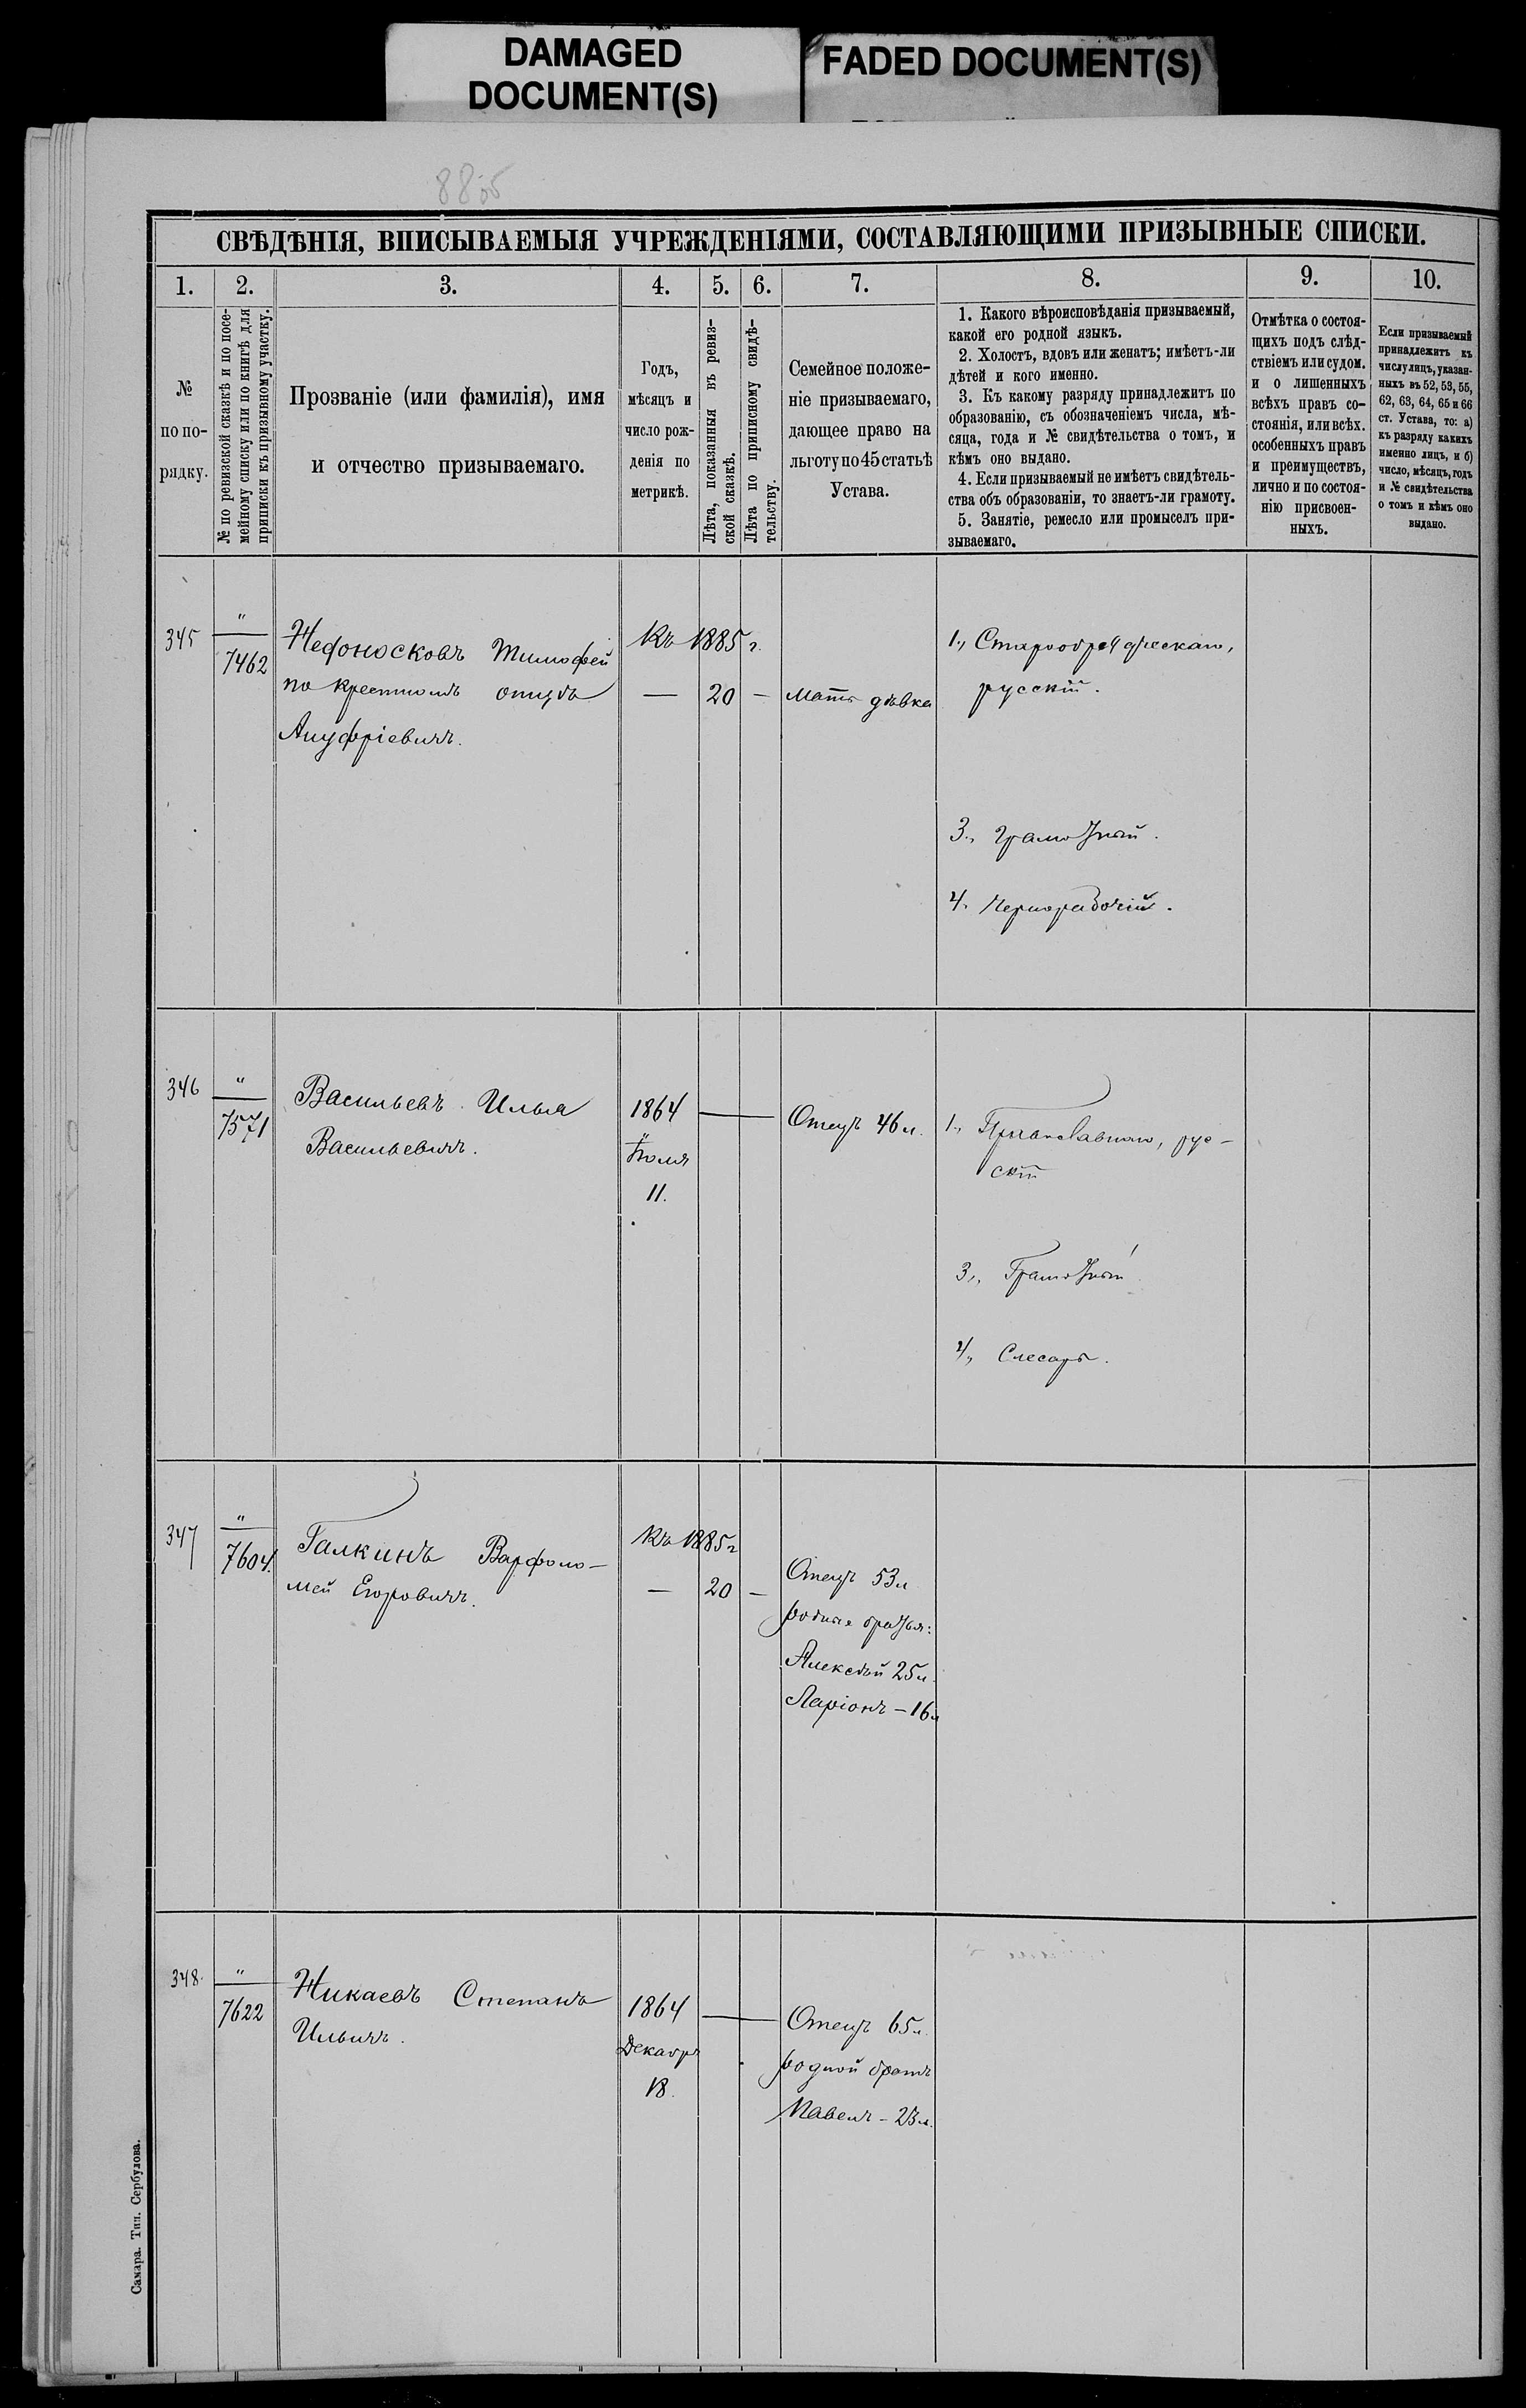 DAMAGED
DOCUMENT(S)
FADED DOCUMENT(S)
СВѢДѢНІЯ, ВПИСЫВАЕМЫЯ УЧРЕЖДЕНІЯМИ, СОСТАВЛЯЮЩИМИ ПРИЗЫВНЫЕ СПИСКИ.
1.
2.
3.
4.
5.
6.
7.
8.
9.
10.
№
по по-
рядку.
№ по ревизской сказкѣ и по посе-
мейному списку или по книгѣ для
приписки къ призывному участку.
Прозваніе (или фамилія), имя
и отчество призываемаго.
Годъ,
мѣсяцъ и
число рож-
денія по
метрикѣ.
Лѣта, показанныя въ ревиз-
ской сказкѣ.
Лѣта по приписному свидѣ-
тельству.
Семейное положе-
ніе призываемаго,
дающее право на
льготу по 45 статьѣ
Устава.
1. Какого вѣроисповѣданія призываемый,
какой его родной языкъ.
2. Холостъ, вдовъ или женатъ; имѣетъ-ли
дѣтей и кого именно.
3. Къ какому разряду принадлежитъ по
образованію, съ обозначеніемъ числа, мѣ-
сяца, года и № свидѣтельства о томъ, и
кѣмъ оно выдано.
4. Если призываемый не имѣетъ свидѣтель-
ства объ образованіи, то знаетъ-ли грамоту.
5. Занятіе, ремесло или промыселъ при-
зываемаго.
Отмѣтка о состоя-
щихъ подъ слѣд-
ствіемъ или судом.
и о лишенныхъ
всѣхъ правъ со-
стоянія, или всѣх.
особенныхъ правъ
и преимуществъ,
лично и по состоя-
нію присвоен-
ныхъ.
Если призываемый
принадлежитъ къ
числу лицъ, указан-
ныхъ въ 52, 53, 55,
62, 63, 64, 65 и 66
ст. Устава, то: а)
къ разряду какихъ
именно лицъ, и б)
число, мѣсяцъ, годъ
и № свидѣтельства
о томъ и кѣмъ оно
выдано.
345
"
7462
Нефоносковъ Тимофей
по крестномъ отцѣ
Ануфріевичъ.
Къ 1885 г.
— 20 —
Мать дѣвка
1., Старообрядческаго,
русскій.
3., Грамотный.
4. Чернорабочій.
346
"
7571
Васильевъ Илья
Васильевичъ.
1864
Іюля
11.
Отецъ 46 л.
1., Православнаго, рус-
скій
3., Грамотный
4, Слесарь.
347
"
7604.
Галкинъ Варфоло-
мей Егоровичъ.
Къ 1885 г
— 20 —
Отецъ 53 л
родные братья:
Алексѣй 25 л.
Ларіонъ — 16 л
348.
"
7622
Никаевъ Степанъ
Ильичъ.
1864
Декабря
18.
Отецъ 65 л.
родной братъ
Павелъ — 23 л.
Самара. Тип. Сербулова.